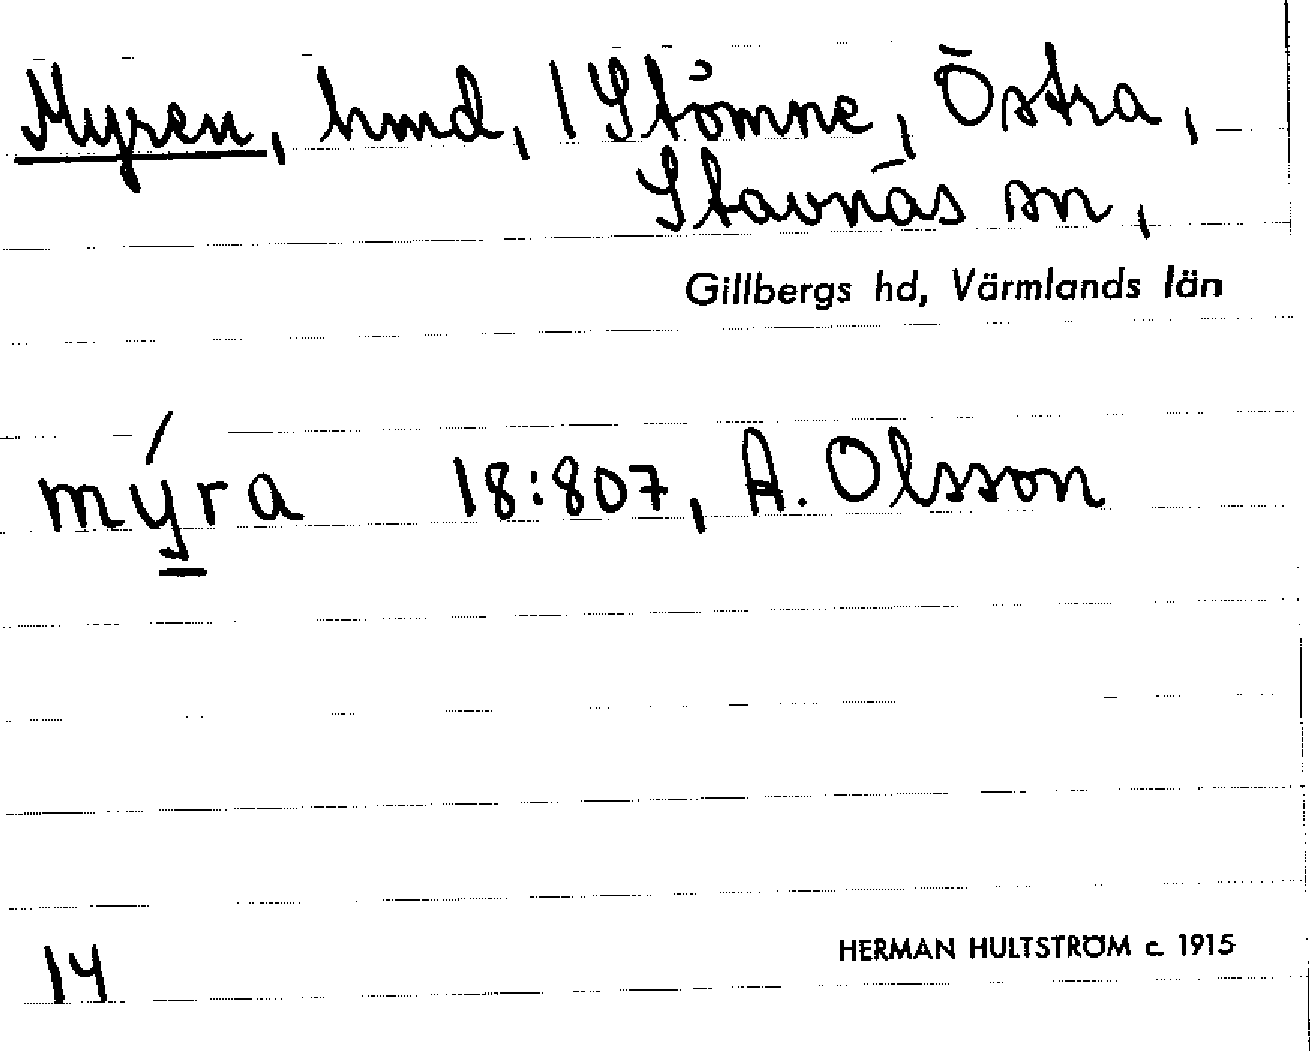 Myren, hmd, 1 Stömne, Östra,
Stavnäs sn,
Gillbergs hd, Värmlands län
mýra 18:807, A. Olsson
14 HERMAN HULTSTRÖM c. 1915